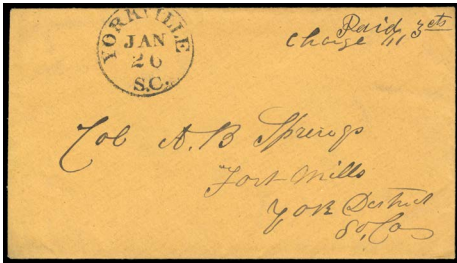 YORKVILLE
JAN
26
S.C.
Paid 3cts
Charge 111
Col A. B Springs
Fort Mills
York District
So, Ca